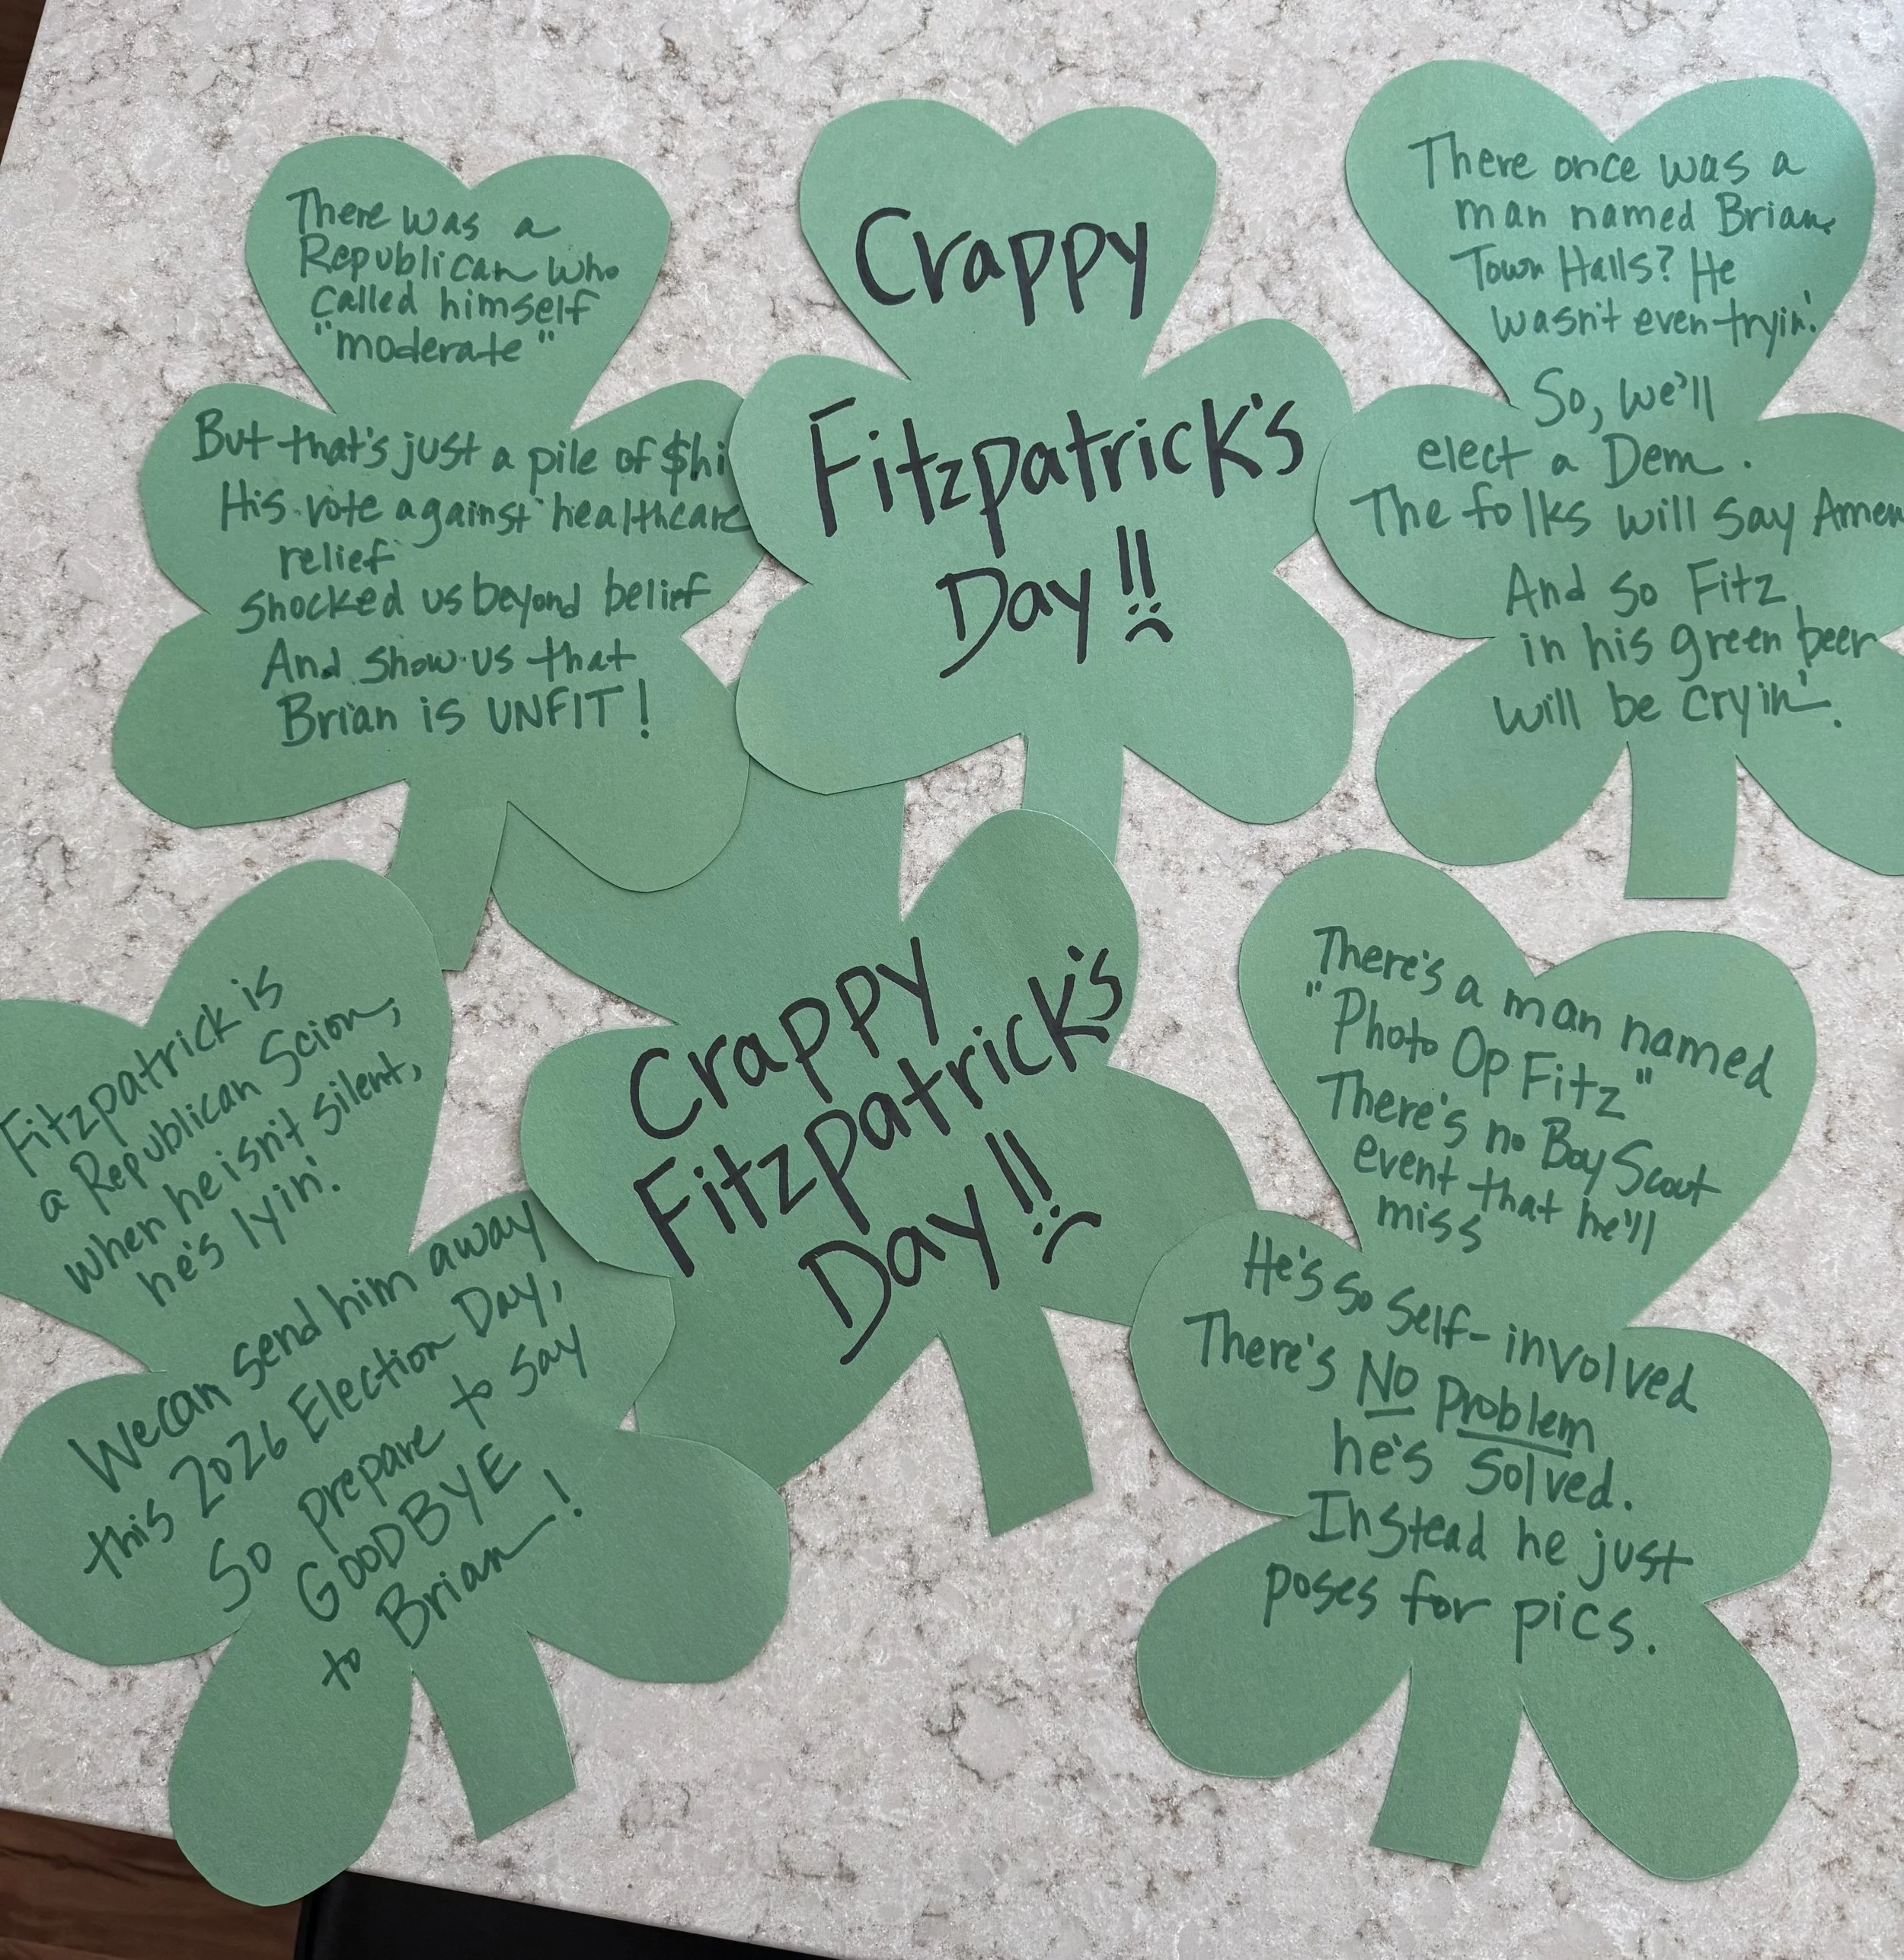 There was a
Republican who
called himself
"moderate"
But that's just a pile of $hi
His vote against healthcare
relief
shocked us beyond belief
And show us that
Brian is UNFIT!
Crappy
Fitzpatrick's
Day!!
There once was a
man named Brian.
Town Halls? He
wasn't even tryin'.
So, we'll
elect a Dem.
The folks will say Amen
And so Fitz
in his green beer
will be cryin'.
Fitzpatrick is
a Republican Scion,
when he isn't silent,
he's lyin'.
We can send him away
this 2026 Election Day,
So prepare to say
GOODBYE
to Brian!
Crappy
Fitzpatrick's
Day!!
There's a man named
"Photo Op Fitz"
There's no Boy Scout
event that he'll
miss
He's so self-involved
There's NO Problem
he's solved.
Instead he just
poses for pics.